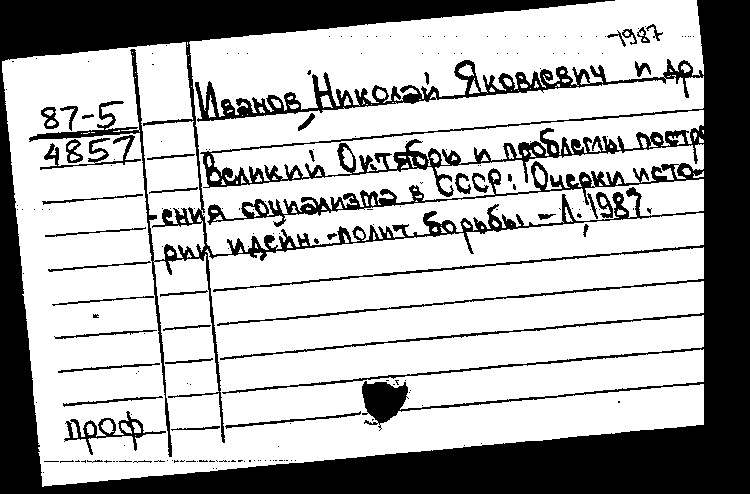 1987
Иванов, Николай Яковлевич и др.
87-5
4857
Великий Октябрь и проблемы постро
-ения социализма в СССР: Очерки исто-
рии идейн.-полит. борьбы. - Л., 1987.
проф